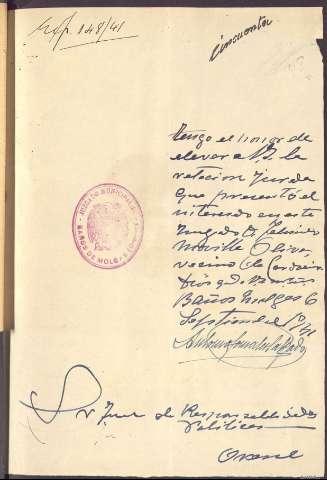 Exp. 148/41
cincuenta
Tengo el honor de
elevar a V.S. la
relación jurada
que presentó el
interesado en este
Juzgado D.
Oliva,
vecino de
Dios gde.
Baños Molgas 6
Septiembre 1941
JUZGADO MUNICIPAL
BAÑOS DE MOLGAS
Sr Juez de Responsabilidades
Políticas
Orense